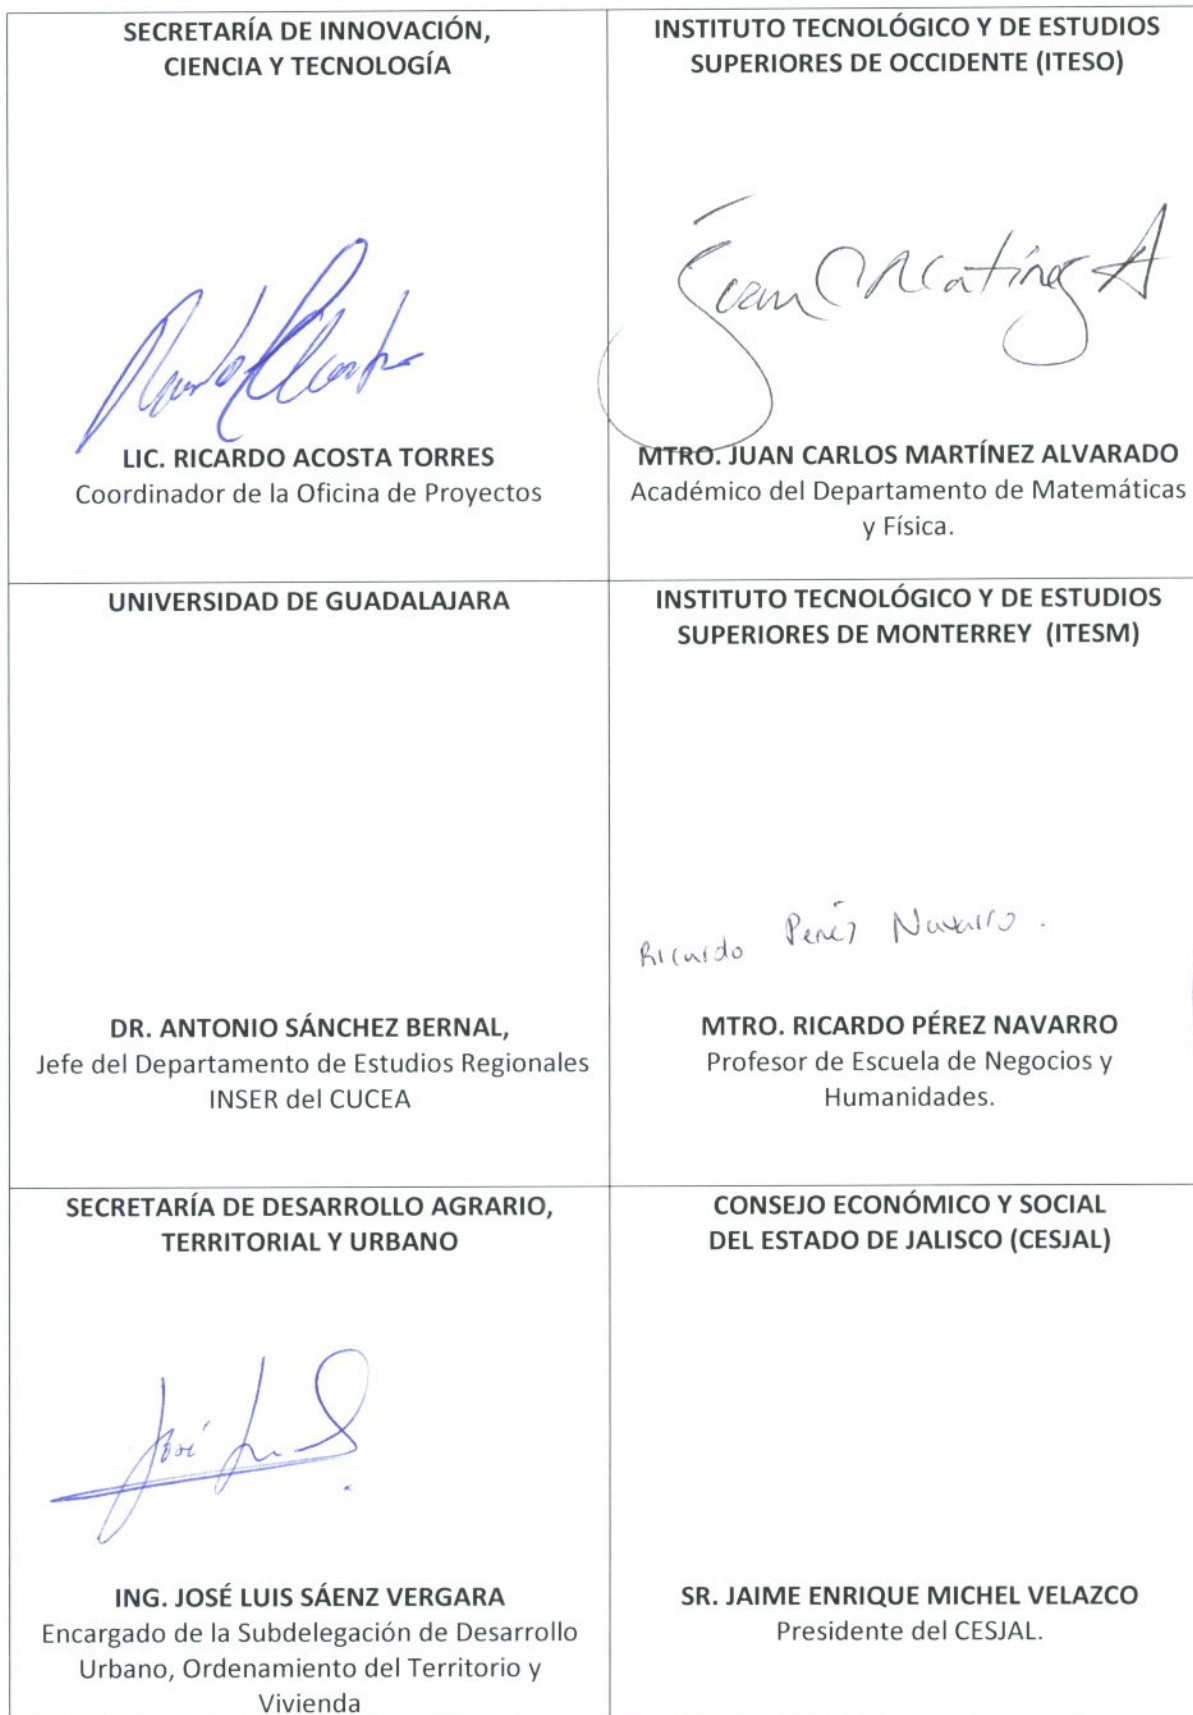 SECRETARÍA DE INNOVACIÓN,
CIENCIA Y TECNOLOGÍA
LIC. RICARDO ACOSTA TORRES
Coordinador de la Oficina de Proyectos
INSTITUTO TECNOLÓGICO Y DE ESTUDIOS
SUPERIORES DE OCCIDENTE (ITESO)
Juan C Martínez A
MTRO. JUAN CARLOS MARTÍNEZ ALVARADO
Académico del Departamento de Matemáticas
y Física.
UNIVERSIDAD DE GUADALAJARA
DR. ANTONIO SÁNCHEZ BERNAL,
Jefe del Departamento de Estudios Regionales
INSER del CUCEA
INSTITUTO TECNOLÓGICO Y DE ESTUDIOS
SUPERIORES DE MONTERREY (ITESM)
Ricardo Pérez Navarro.
MTRO. RICARDO PÉREZ NAVARRO
Profesor de Escuela de Negocios y
Humanidades.
SECRETARÍA DE DESARROLLO AGRARIO,
TERRITORIAL Y URBANO
José
ING. JOSÉ LUIS SÁENZ VERGARA
Encargado de la Subdelegación de Desarrollo
Urbano, Ordenamiento del Territorio y
Vivienda
CONSEJO ECONÓMICO Y SOCIAL
DEL ESTADO DE JALISCO (CESJAL)
SR. JAIME ENRIQUE MICHEL VELAZCO
Presidente del CESJAL.